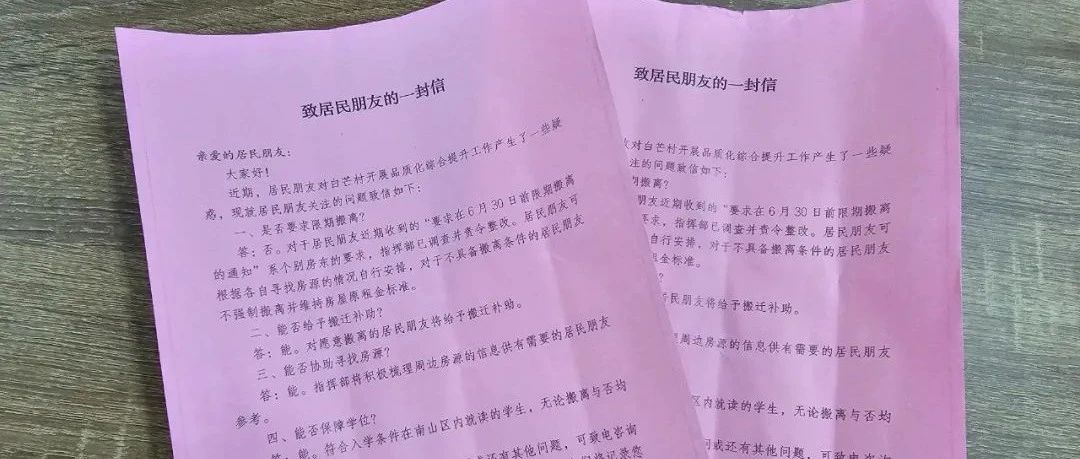 致居民朋友的一封信
亲爱的居民朋友：
大家好！
近期，居民朋友对白芒村开展品质化综合提升工作产生了一些疑
惑，现就居民朋友关注的问题致信如下：
一、是否要求限期搬离？
答：否。对于居民朋友近期收到的“要求在6月30日前限期搬离
的通知”系个别房东的要求，指挥部已调查并责令整改。居民朋友可
根据各自寻找房源的情况自行安排，对于不具备搬离条件的居民朋友
不强制搬离并维持房屋原租金标准。
二、能否给予搬迁补助？
答：能。对愿意搬离的居民朋友将给予搬迁补助。
三、能否协助寻找房源？
答：能。指挥部将积极梳理周边房源的信息供有需要的居民朋友
参考。
四、能否保障学位？
答：能。符合入学条件在南山区内就读的学生，无论搬离与否均
或还有其他问题，可致电咨询
记录您
致居民朋友的一封信
友对白芒村开展品质化综合提升工作产生了一些疑
注的问题致信如下：
期搬离？
朋友近期收到的“要求在6月30日前限期搬离
要求，指挥部已调查并责令整改。居民朋友可
自行安排，对于不具备搬离条件的居民朋友
租金标准。
？
居民朋友将给予搬迁补助。
周边房源的信息供有需要的居民朋友
区内就读的学生，无论搬离与否均
问或还有其他问题，可致电咨询